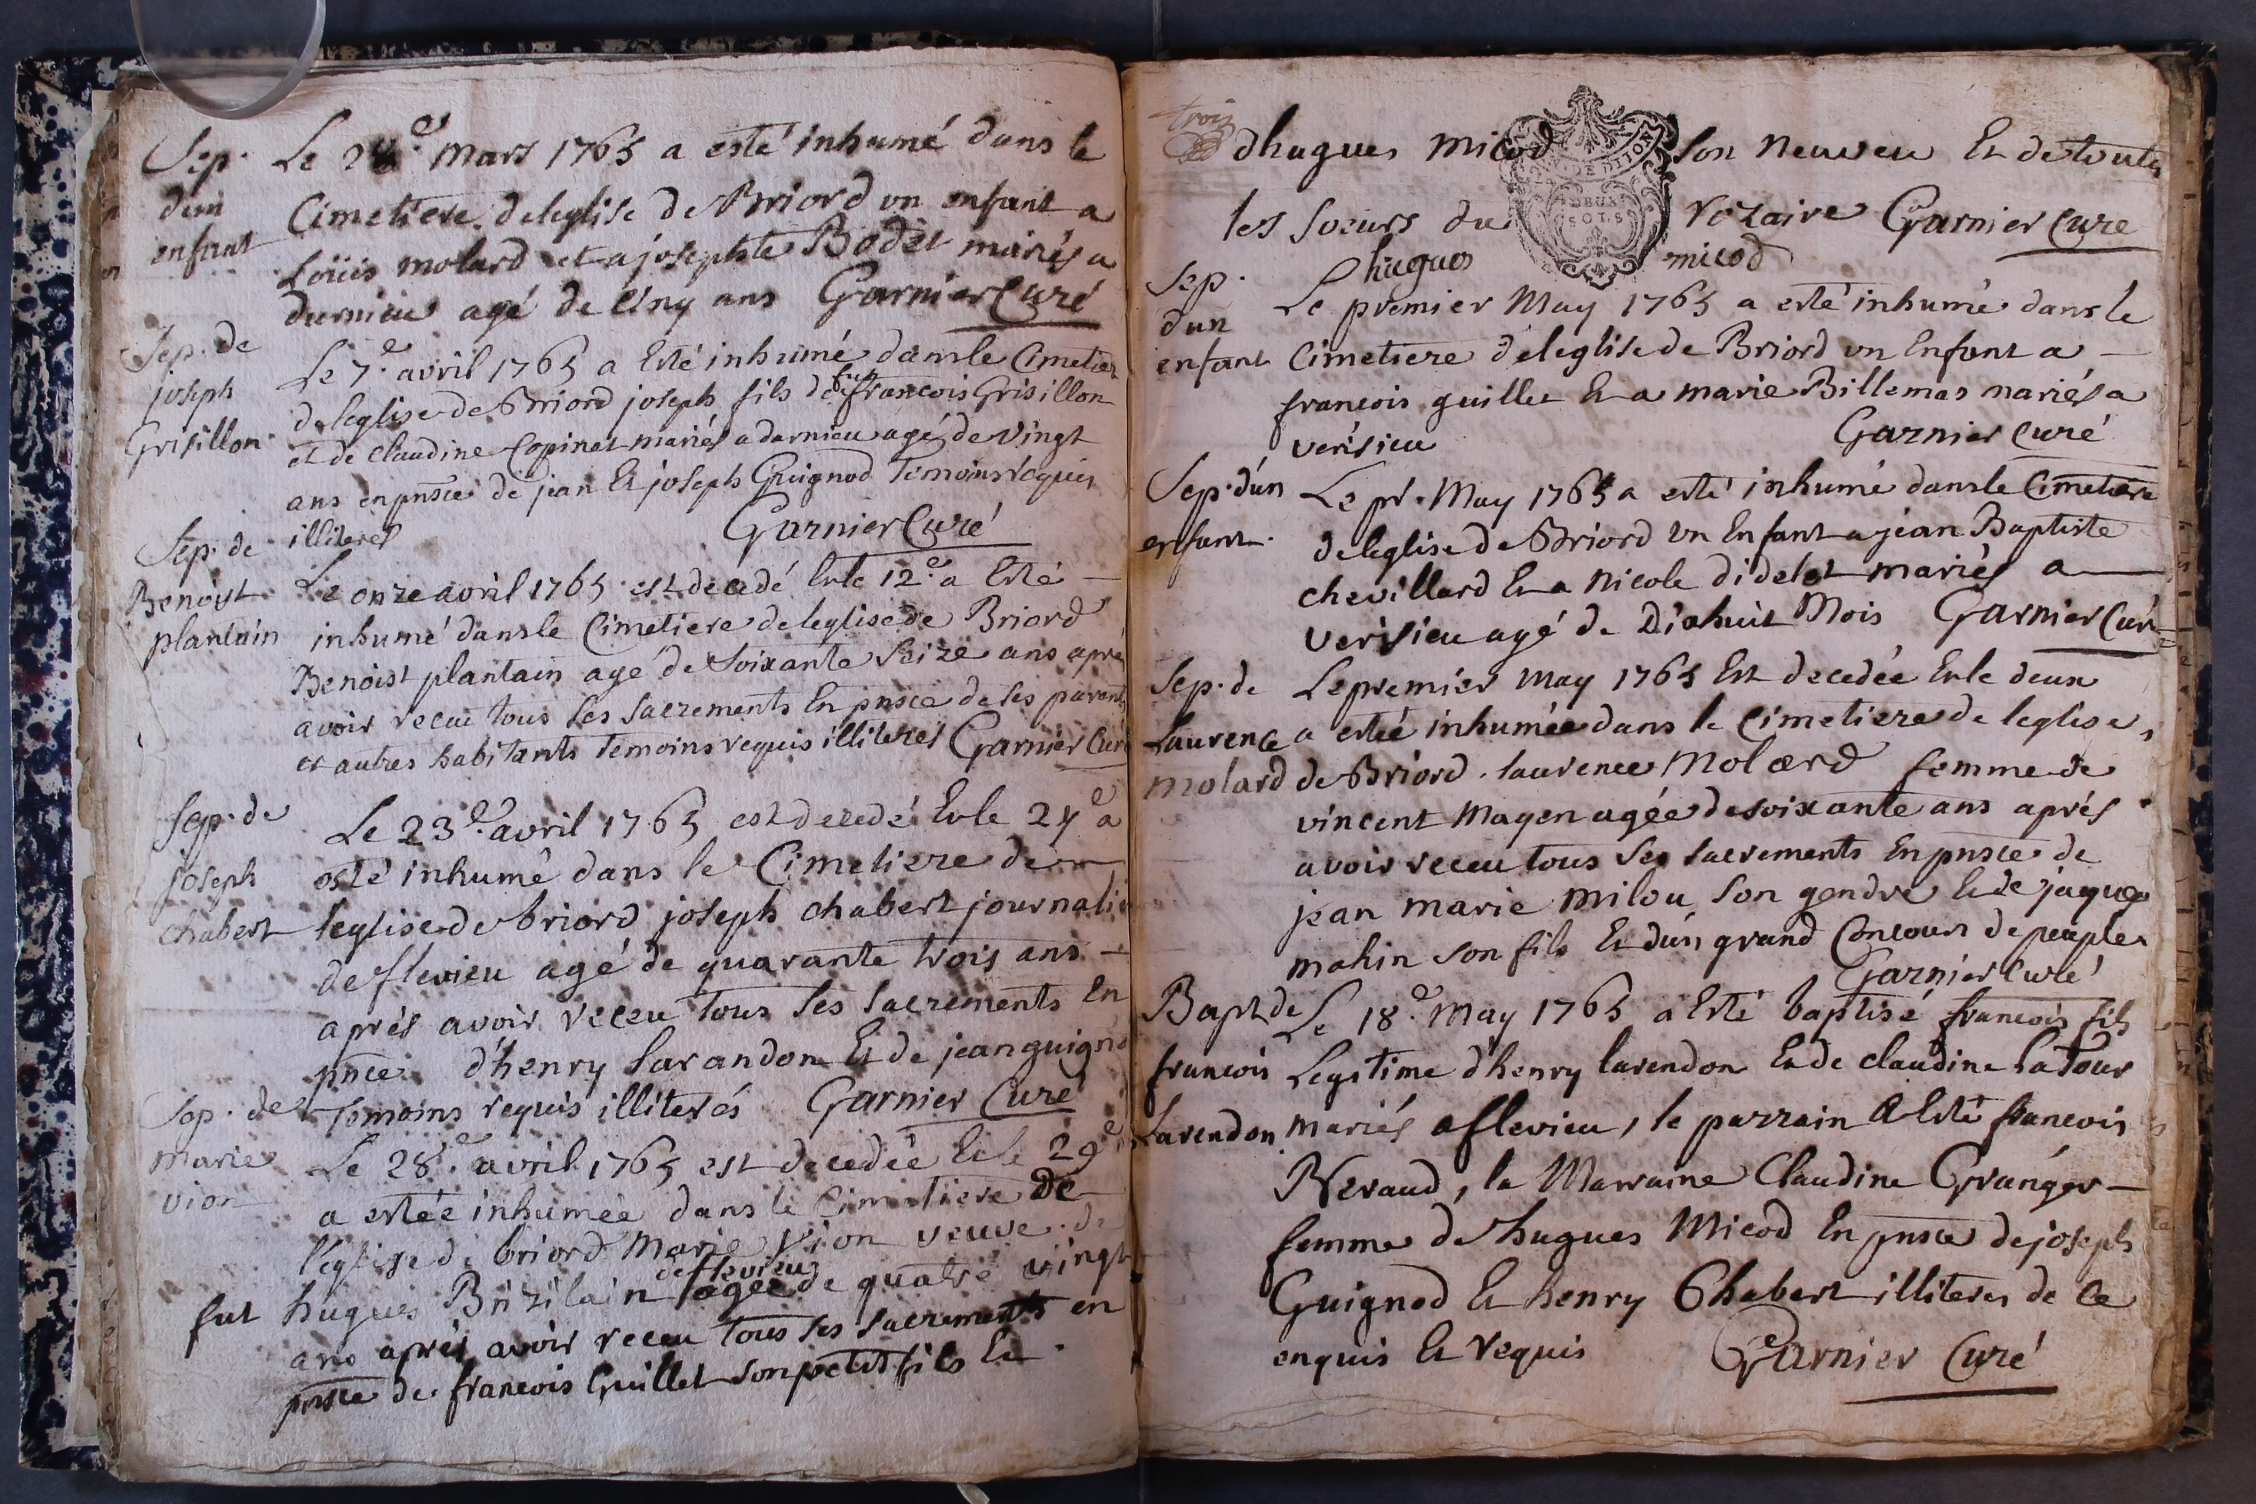 Sep. d'un enfant
Le 24e. mars 1765 a esté inhumé dans le
Cimetiere de leglise de Briord un enfant a
Loüis molard et a josephte Bodet mariés a
durnieu agé de cinq ans Garnier Curé
Sep. de joseph Grisillon
Le 7e. avril 1765 a Esté inhumé dans le Cimetiere
de leglise de Briord joseph fils de feu francois Grisillon
et de claudine Copinet mariés a darnieu agé de vingt
ans en pnsce de jean Et joseph Guignod Temoins requis
illiterés Garnier Curé
Sep. de Benoyt plantain
Le onze avril 1765 est decedé Et le 12e. a Esté
inhumé dans le Cimetiere de leglise de Briord
Benoist plantain agé de Soixante Seize ans aprés
avoir receu tous les Sacrements En pnsce de ses parents
et autres habitants Temoins requis illiterés Garnier Curé
Sep. de joseph chabert
Le 23e. avril 1765 est decedé Et le 24e a
esté inhumé dans le Cimetiere de
leglise de briord joseph chabert journalier
de flevieu agé de quarante trois ans
aprés avoir receu tous ses Sacrements En
pnsce d'henry Larandon Et de jean guignod
Temoins requis illiterés Garnier Curé
Sep. de marie vion
Le 28e. avril 1765 est decedée Et le 29e
a estée inhumée dans le Cimetiere de
l'eglise de briord Marie Vion veuve de
fut hugues Brizilain de flevieu agée de quatre vingt
ans aprés avoir receu tous ses sacrements en
pnsce de francois Guillet son petit fils Et
trois
dhugues micod son neuveu Et de toutes
les soeurs du Rozaire Garnier Curé
hugues micod
Sep. d'un enfant
Le premier May 1765 a esté inhumé dans le
Cimetiere de leglise de Briord un Enfant a
francois guillet Et a marie Billemas mariés a
verisieu Garnier Curé
Sep. d'un enfant.
Le pr. May 1765 a esté inhumé dans le Cimetiere
de leglise de Briord un Enfant a jean Baptiste
chevillard Et a Nicole didelet mariés a
verisieu agé de Dixhuit Mois Garnier Curé
Sep. de Laurence molard
Le premier May 1765 Est decedée Et le deux
a estée inhumée dans le Cimetiere de leglise
de Briord laurence Molard femme de
vincent Mayen agée de soixante ans aprés
avoir receu tous ses sacrements En pnsce de
jean marie milou son gendre Et de jaques
mahin son fils Et d'un grand Concours de peuple
Garnier Curé
Bapt. de francois Larendon
Le 18e. May 1765 a Esté baptisé francois fils
Legitime d'henry larendon Et de claudine La Tour
mariés a flevieu, le parrain A Esté francois
Neraud, la Marraine Claudine Granger
femme de hugues Micod En pnsce de joseph
Guignod Et henry Chabert illiteres de ce
enquis Et requis Garnier Curé